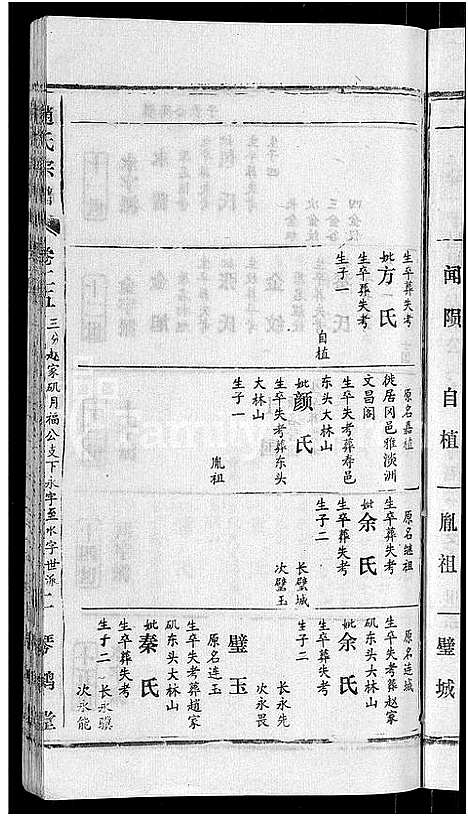 闻陨
自植
胤祖
璧城
生卒葬失考
妣方氏
生卒葬失考
生子一
自植
原名嘉植
徙居冈邑雅淡洲
文昌阁
生卒失考葬寿邑
东头大林山
妣颜氏
生卒失考葬东头
大林山
生子一
胤祖
原名继祖
生卒葬失考
妣余氏
生卒葬失考
生子二
长璧城
次璧玉
原名连城
生卒失考葬赵家
矶东头大林山
妣余氏
生卒葬失考
生子二
长永先
次永畏
璧玉
原名连玉
生卒失考葬赵家
矶东头大林山
妣秦氏
生卒葬失考
生子二
长永骥
次永能
赵氏宗谱
卷之五
三分赵家矶月福公支下永字至水字世派
二
琴鹤堂